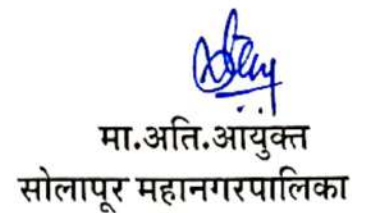 मा.अति.आयुक्त
सोलापूर महानगरपालिका